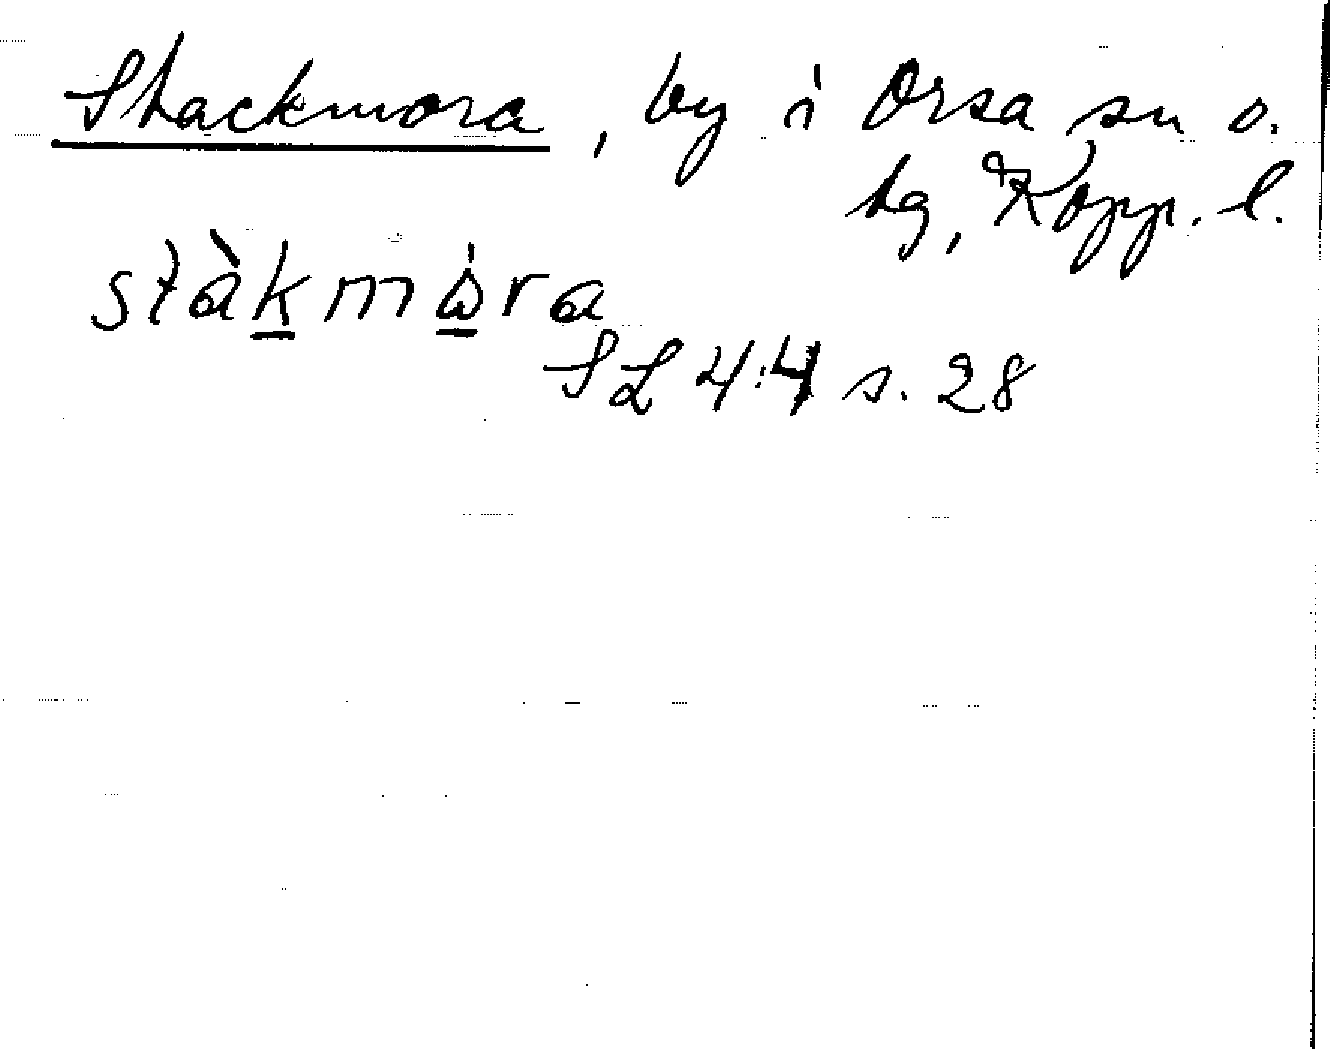 Stackmora, by i Orsa sn o.
tg, Kopp. l.
stàkmòra
SL 4:4 s. 28